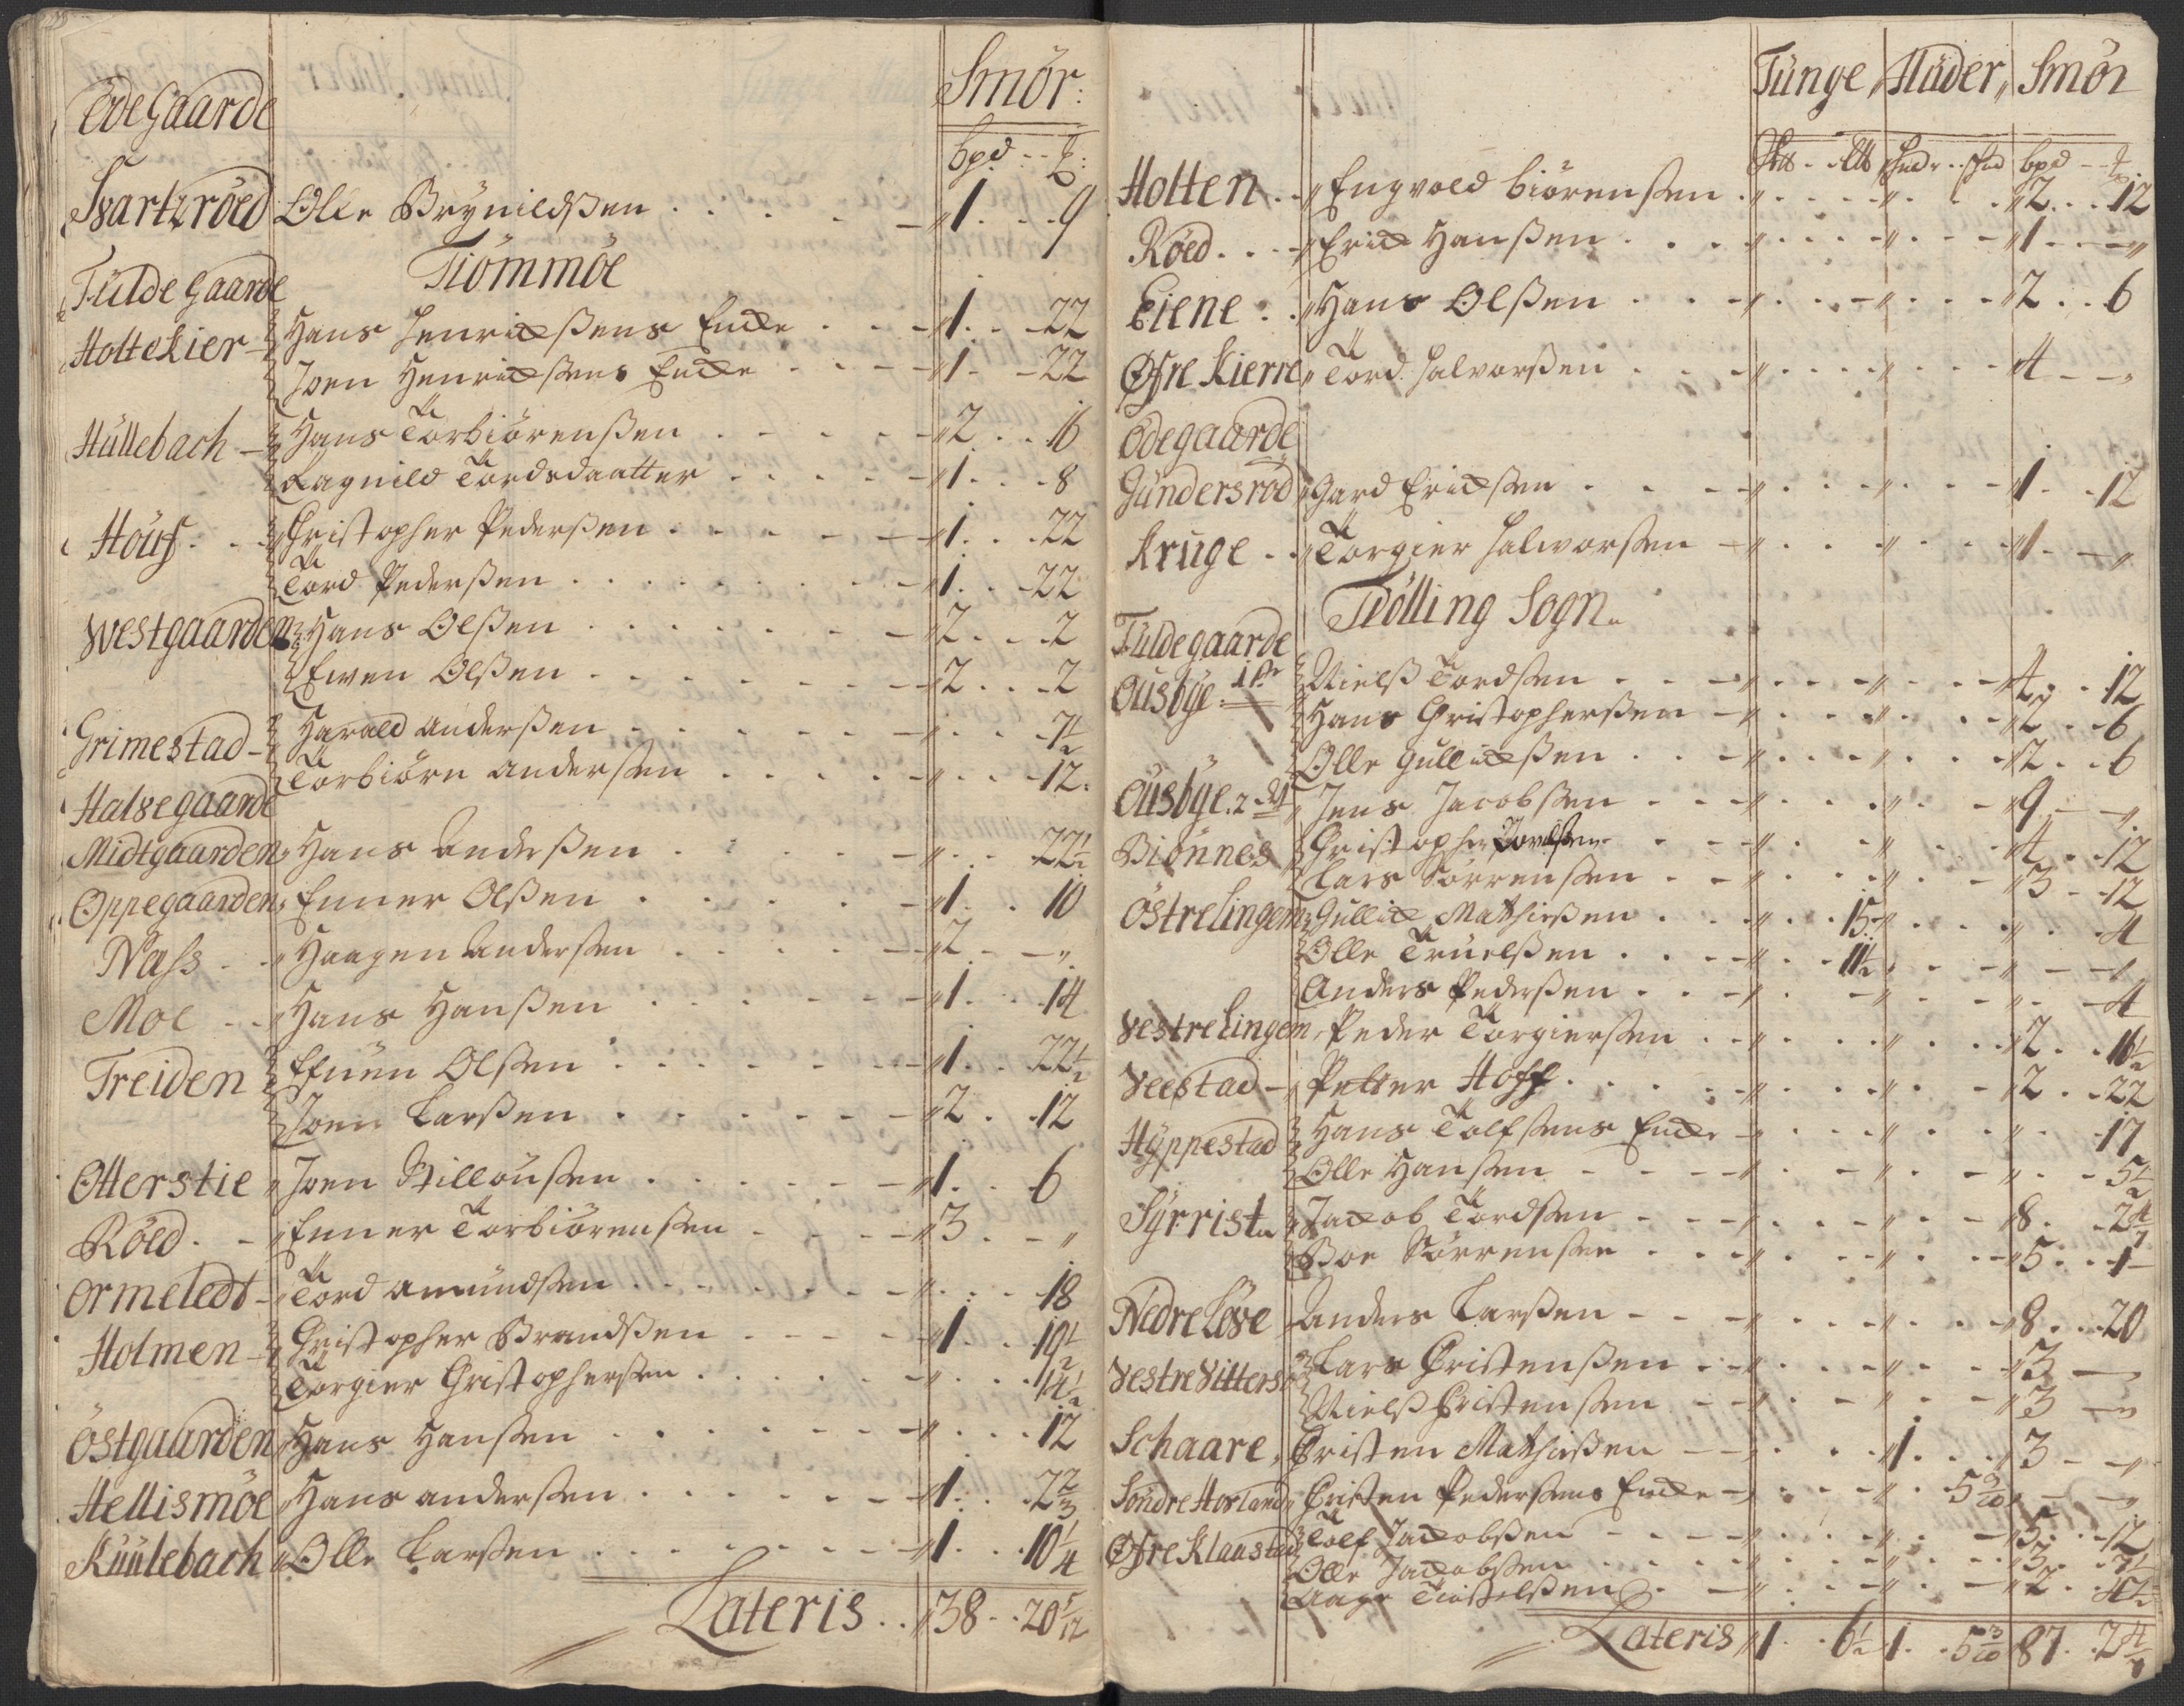 Smör:
Ödegaarde
bpd: ℔:
Svartzröed Olle Brÿnildßen 1 9
Tiömmöe
Fülde Gaarde
Holtekier Hans Henrichßens Encke 1 22
Joen Henrichßens Encke 1 22
Hüllebach Hans Torbiörenßen 2 16
Ragnild Tordsdaatter 1 8
Höüf Christopher Pederßen 1 22
Tord Pederßen 1 22
Westgaarden Hans Olßen 2 2
Ewen Olßen 2 2
Grimestad Harald anderßen 7½
Torbiörn anderßen 12
Halvegaarde
Midtgaarden Hans Anderßen 22½
Oppegaarden Enner Olßen 1 10
Nass Haagen Anderßen 2 "
Moe Hans Hanßen 1 14
Treiden Efuen Olßen 1 22½
Joen Larßen 2 12
Otterstie Joen 1 6
Röed Enner Torbiörenßen 3 "
Ormeledt Tord amundßen 18
Holmen Christopher Brandßen 1 19½
Torgier Christopherßen 14½
Östgaarden Hans Hanßen 12
Hellismöe Hans anderßen 1 2⅔
Kuulebach Olle Larßen 1 10¼
Lateris 38 20 5/12
Tünge, Hüder, Smör
Hud bpd ℔
Holten Engvold biörenßen 2 12
Röed Erich Hanßen 1 "
Eiene Hans Olßen 2 6
Øfre Kierre Tord Halvorßen 4 "
Ödegaarde
Gündersröd Gard Erichßen 1 12
Kruge Torgier Halvorßen 1 "
Tiölling Sogn.
Füldegaarde
Oüsbÿe 1st Nielß Tordßen 4 12
Hans Christopherßen 2 6
Olle Gullichßen 2 6
Oüsbÿe 2 Jens Jacobßen 9 "
Biönnes Christopher 4 12
Lars Sörrenßen 3 12
Östre Lingem Gullich Mathißen 15 4
Olle Truelßen 11½
Anders Pederßen 4
Vestre Lingem Peder Torgierßen 2 16½
Veestad Petter Hoff 2 22
Hÿppestad Hans Tolfßens Encke 17
Olle Hanßen 5½
Sÿrrist Jacob Tordßen 8 2 4/7
Boe Sörrenßen 5 1
Nedre Löve Anders Larßen 8 20
Vestre Vitters Lars Cristenßen 3
Nielß Cristenßen 3 "
Schaare Cristen Mathißen 1 3 "
Söndre Horland Cristen Pederßens Encke 5 3/20 "
Øfre Klaustad Tolf Jacobßen 5 12
Olle Jacobßen 3 7½
Aage 2 4½
Lateris 1 6½ 1 5 3/20 87 2 4/7